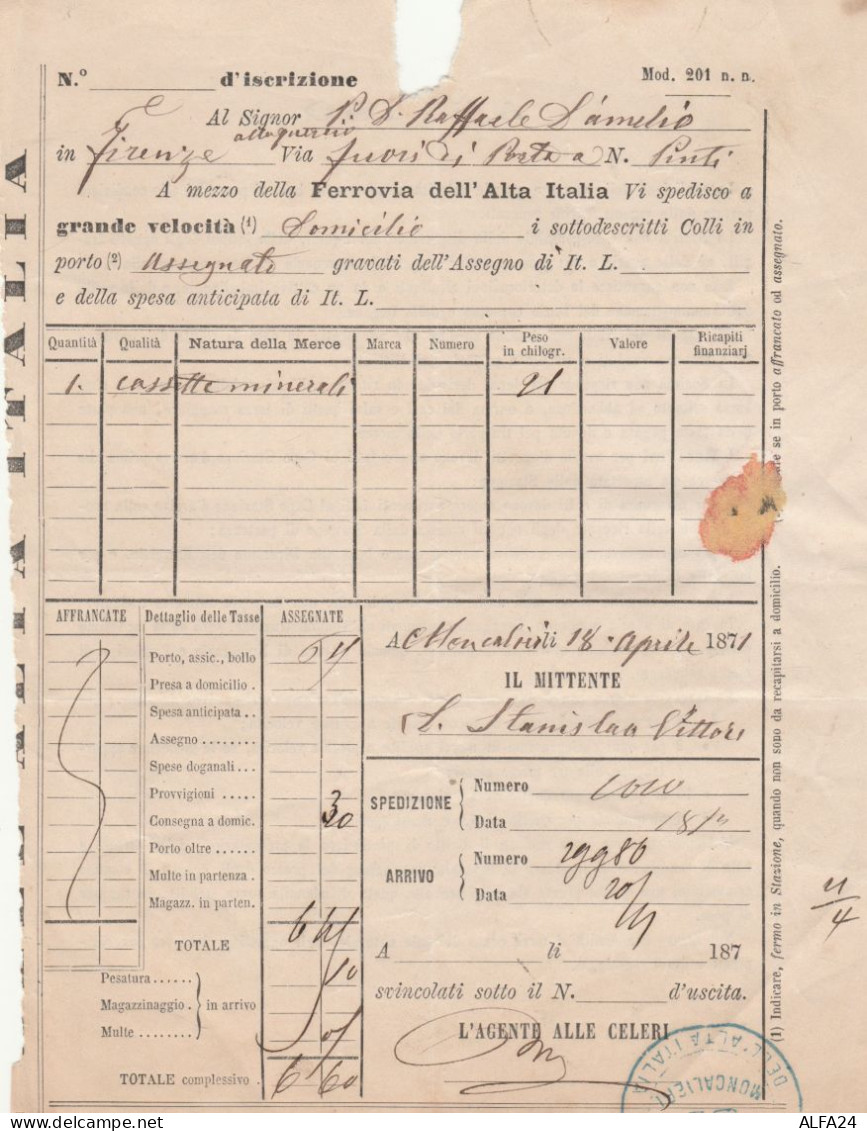 N.° d'iscrizione Mod. 201 n. n.
Al Signor P. D. Raffaele D'amelio
alla querce
in Firenze Via fuori di Porta a N. Pinti
A mezzo della Ferrovia dell'Alta Italia Vi spedisco a
grande velocità (1) Domicilio i sottodescritti Colli in
porto (2) Assegnato gravati dell'Assegno di It. L.
e della spesa anticipata di It. L.
Quantità Qualità Natura della Merce Marca Numero Peso in chilogr. Valore Ricapiti finanziarj
1. cassetta minerali 21
AFFRANCATE Dettaglio delle Tasse ASSEGNATE
Porto, assic., bollo
Presa a domicilio .
Spesa anticipata . .
Assegno ........
Spese doganali ...
Provvigioni .....
Consegna a domic. 30
Porto oltre .....
Multe in partenza .
Magazz. in parten.
TOTALE
10
Pesatura ......
Magazzinaggio . in arrivo
Multe ........
05
TOTALE complessivo . 6 60
A Moncalieri li 18 Aprile 1871
IL MITTENTE
D. Stanislao Vittori
SPEDIZIONE Numero
Data 18/
ARRIVO Numero 29986
Data 20/
A li 187
svincolati sotto il N. d'uscita.
L'AGENTE ALLE CELERI
DELL'ALTA ITALIA
MONCALIERI
se in porto affrancato od assegnato.
(1) Indicare, fermo in Stazione, quando non sono da recapitarsi a domicilio.
ALTA ITALIA
ALFA24